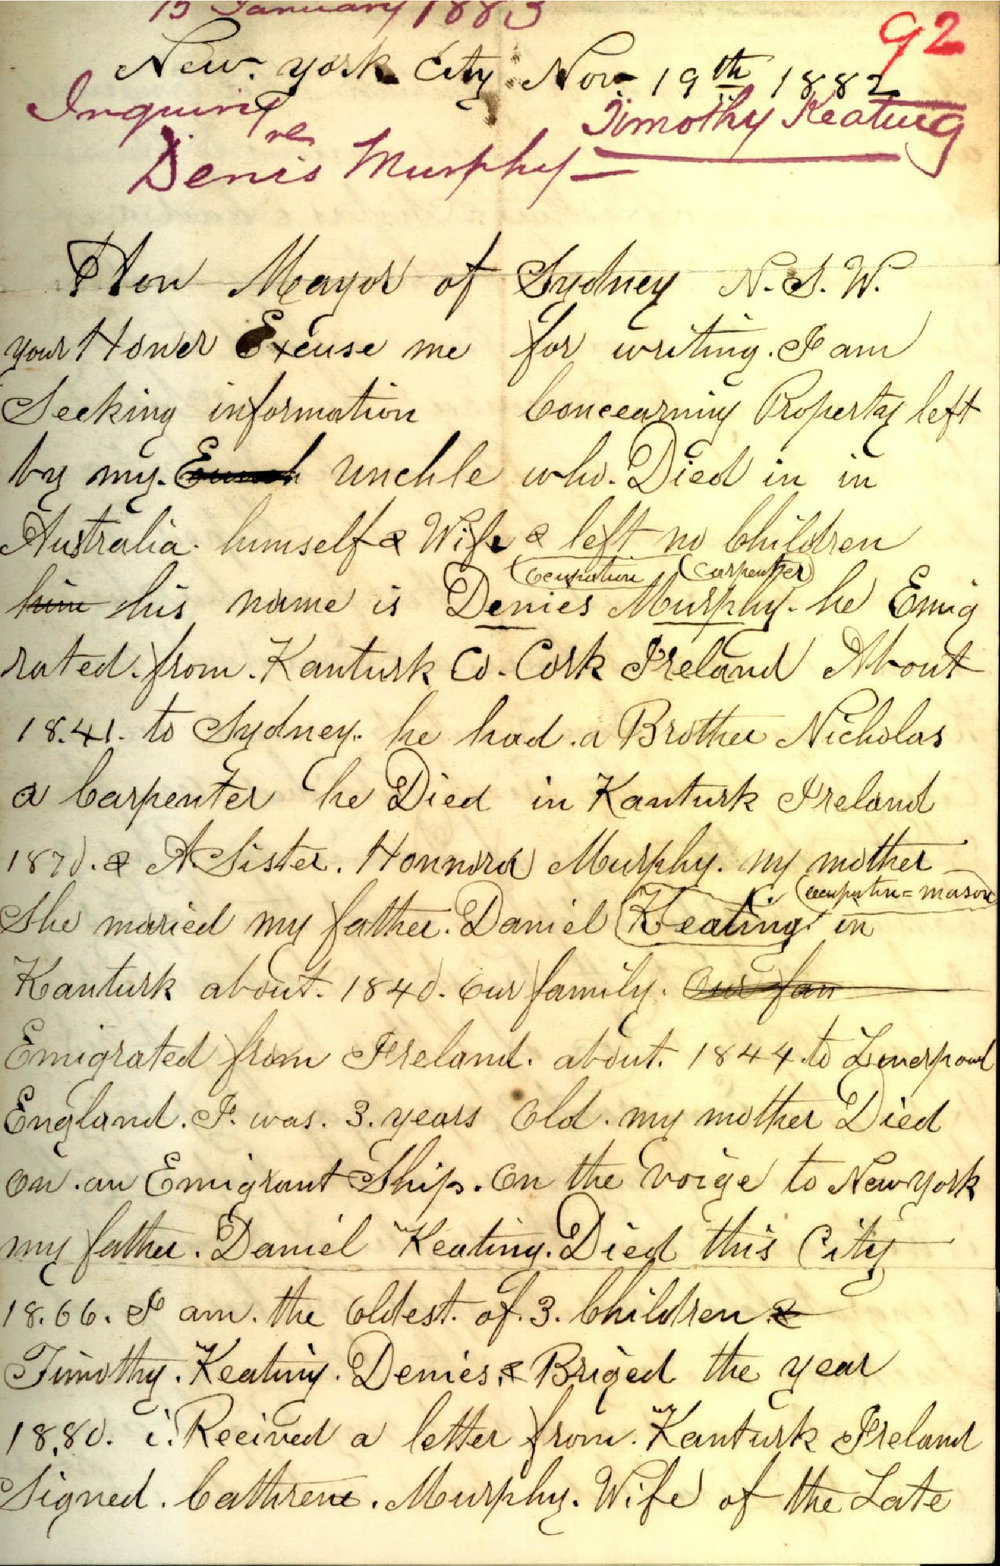 15 January 1883
92
New York City Nov 19th 1882
Inquiring
Timothy Keating
re
Denis Murphy
Hon Mayor of Sydney N.S.W.
your Honer Excuse me for writing. I am
Seeking information Concearning Property left
by my. unchle who. Died in in
Australia. himself & Wife & left no Children
occupation Carpenter
him his name is Denies Murphy. he Emig
rated. from. Kanturk Co. Cork Ireland About
18.41. to Sydney. he had. a Brother Nicholas
a Carpenter he Died in Kanturk Ireland
1870. & A Sister. Honnora Murphy. my mother
occupation = mason
She maried my father. Daniel Keating in
Kanturk about. 1840. Our family. Our fam
Emigrated from Ireland. about. 1844. to Liverpool
England. I. was. 3. years Old. my mother Died
On. an Emigrant Ship. On the voige to New York
my father. Daniel Keating. Died this City
18.66. I am. the Oldest. of. 3. Children &
Timothy. Keating. Denies. & Briged the year
18.80. i. Recived a letter from. Kanturk Ireland
Signed. Cathrene. Murphy. Wife of the Late